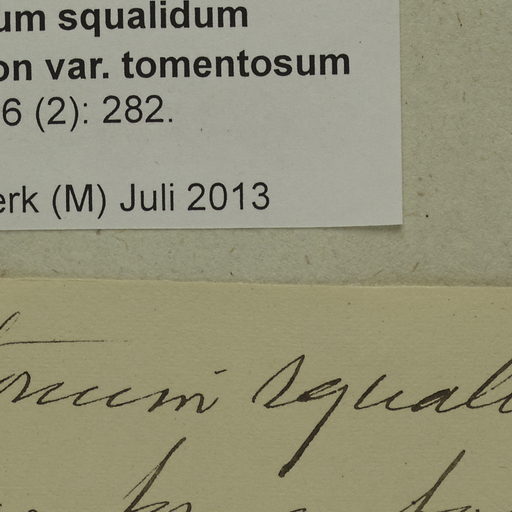 um squalidum
on var. tomentosum
6 (2): 282.
erk (M) Juli 2013
squal